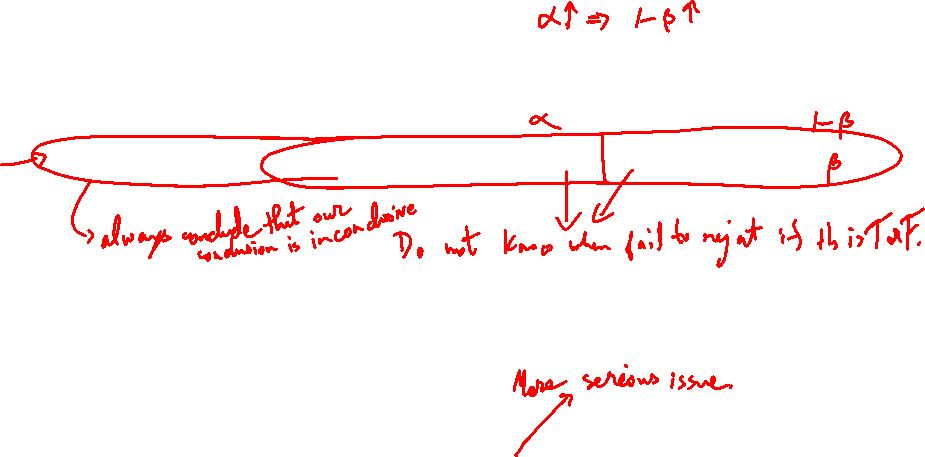 α↑ ⇒ 1-β↑
α 1-β
β
always conclude that our
conclusion is inconclusive
Do not know when fail to reject if th is T or F.
More serious issue.